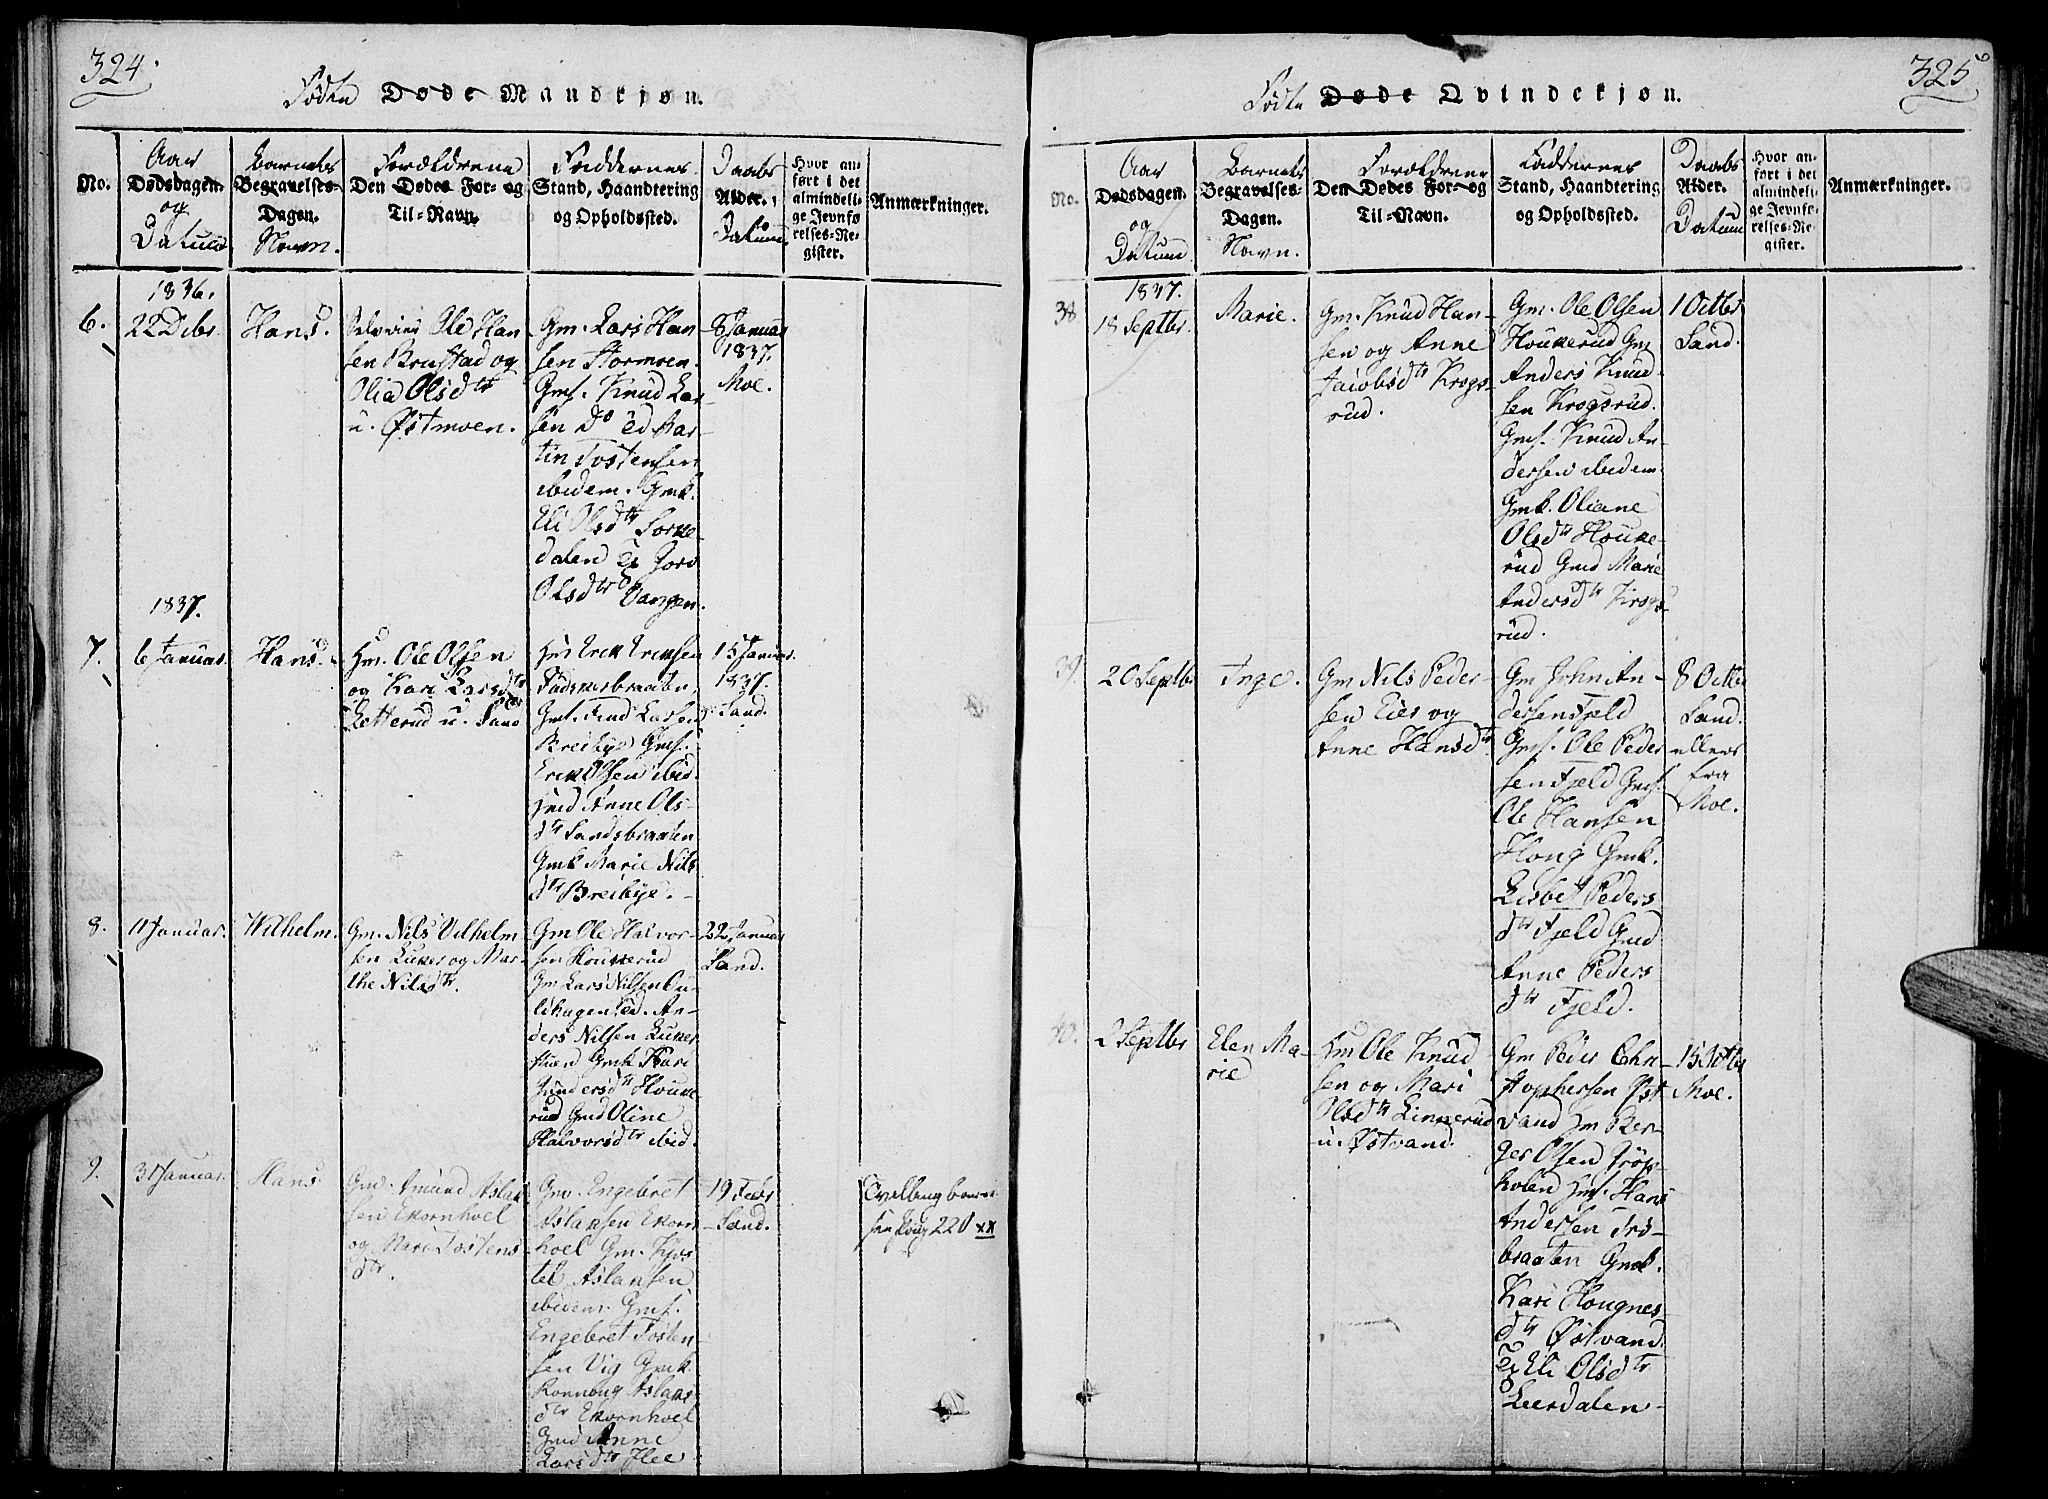 324.
Födte Døde Mandkjøn.
No.
Aar Dødsdagen. og Datum
Barnets Begravelses-Dagen. Navn.
Forældrene Den Dødes For- og Til-Navn.
Faddernes Stand, Haandtering og Opholdssted.
Daabs Alder. Datum
Hvor anført i det almindelige Jevnførelses-Register.
Anmærkninger.
6.
1836.
22 Decbr.
Hans.
Ole Han
sen Brustad og
Olia Olsdtr
u. Østmoen.
Gm. Lars Han
sen Stormoen.
Gmf. Knud Lar
sen Do Ed Mar
tin Tostensen
ibidem. Gmk.
Eli Olsdtr Sorke
dalen
Olsdtr Vangen.
8 Januar
1837.
Moe.
7.
1837.
6 Januar.
Hans.
Hm. Ole Olsen
og Kari Larsdtr
Zetterud u. Sand
Hm Erik Eriksen
Gmf.
Breibye Gmf.
Erik Olsen ibid.
Hmd Anne Ols
dtr Sandsbraaten
Gmk Marie Nils
dtr Breibye.
15 Januar
1837.
Sand.
8.
11 Januar.
Wilhelm.
Gm. Nils Vilhelm
sen Euker og Mar
the Nilsdtr.
Gm Ole Halvor
sen Houkerud
Gm Lars Nilsen Gu
ldhagen Ed. An
ders Nilsen Euker
Gmk Kari
Gundersdtr Houke
rud Gmd Oline
Halvorsdtr ibid.
22 Januar
Sand.
9.
31 Januar.
Hans
Gm. Amund Aslak
sen Ekornhoel
og Mari Tostens
dtr.
Gm. Engebret
Aslaksen Ekorn
hoel Gm. Kjos
tel Aslaksen
ibidem. Gmf.
Engebret Tosten
sen Vig Gmk
Ronnoug Aslaks
dtr Ekornhoel
Gmd Anne
Larsdtr Hee
19 Febr
Sand.
Tvilling
220 xx
325
Födte Døde Qvindekjøn.
No.
Aar Dødsdagen. og Datum
Barnets Begravelses-Dagen. Navn.
Forældrene Den Dødes For- og Til-Navn.
Faddernes Stand, Haandtering og Opholdssted.
Daabs Alder. Datum
Hvor anført i det almindelige Jevnførelses-Register.
Anmærkninger.
38
1837.
18 Septbr.
Marie.
Gm. Knud Han
sen og Anne
Jacobsdtr Krogs
rud.
Gm. Ole Olsen
Houkerud Gm
Anders Knud
sen Krogsrud.
Gmf. Knud An
dersen ibidem
Gmk. Oliane
Olsdtr Houke
rud Gmd Marie
Andersdtr Krogs
rud.
1 Octbr
Sand.
39.
20 Septbr
Inge.
Gm Nils Peder
sen Eies og
Anne Hansdtr
Gm John An
dersen Fjeld
Gmf. Ole Peder
sen Fjeld Gmf.
Ole Hansen
Hong Gmk.
Lisbet Peders
dtr Fjeld Gmd
Anne Peders
dtr Fjeld.
8 Octbr
Sand.
ellers
fra
Moe.
40.
2 Septbr
Elen Ma
rie
Hm Ole Knud
sen og Mari
Olsdtr Linnerud
u. Østvand.
Gm Peder Chri
stophersen Øst
vand Hm Ber
ger Olsen
Hmf. Hans
Andersen
braaten Gmk.
Kari Hougnes
dtr Østvand.
Eli Olsdtr
Leerdalen
15 Octbr
Moe.